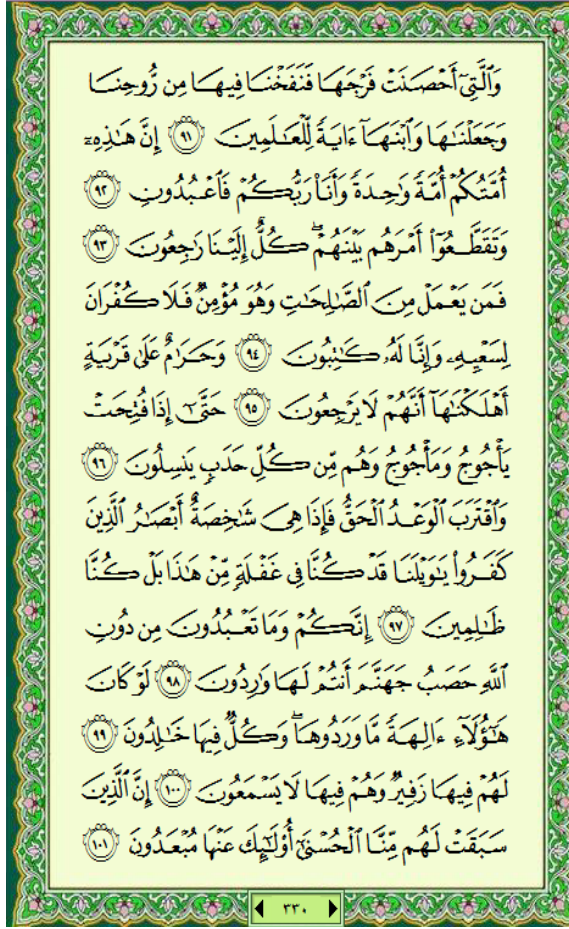 وَٱلَّتِىٓ أَحْصَنَتْ فَرْجَهَا فَنَفَخْنَا فِيهَا مِن رُّوحِنَا
وَجَعَلْنَٰهَا وَٱبْنَهَآ ءَايَةً لِّلْعَٰلَمِينَ ٩١ إِنَّ هَٰذِهِۦٓ
أُمَّتُكُمْ أُمَّةً وَٰحِدَةً وَأَنَا۠ رَبُّكُمْ فَٱعْبُدُونِ ٩٢
وَتَقَطَّعُوٓا۟ أَمْرَهُم بَيْنَهُمْ ۖ كُلٌّ إِلَيْنَا رَٰجِعُونَ ٩٣
فَمَن يَعْمَلْ مِنَ ٱلصَّٰلِحَٰتِ وَهُوَ مُؤْمِنٌ فَلَا كُفْرَانَ
لِسَعْيِهِۦ وَإِنَّا لَهُۥ كَٰتِبُونَ ٩٤ وَحَرَٰمٌ عَلَىٰ قَرْيَةٍ
أَهْلَكْنَٰهَآ أَنَّهُمْ لَا يَرْجِعُونَ ٩٥ حَتَّىٰٓ إِذَا فُتِحَتْ
يَأْجُوجُ وَمَأْجُوجُ وَهُم مِّن كُلِّ حَدَبٍ يَنسِلُونَ ٩٦
وَٱقْتَرَبَ ٱلْوَعْدُ ٱلْحَقُّ فَإِذَا هِىَ شَٰخِصَةٌ أَبْصَٰرُ ٱلَّذِينَ
كَفَرُوا۟ يَٰوَيْلَنَا قَدْ كُنَّا فِى غَفْلَةٍ مِّنْ هَٰذَا بَلْ كُنَّا
ظَٰلِمِينَ ٩٧ إِنَّكُمْ وَمَا تَعْبُدُونَ مِن دُونِ
ٱللَّهِ حَصَبُ جَهَنَّمَ أَنتُمْ لَهَا وَٰرِدُونَ ٩٨ لَوْ كَانَ
هَٰٓؤُلَآءِ ءَالِهَةً مَّا وَرَدُوهَا ۖ وَكُلٌّ فِيهَا خَٰلِدُونَ ٩٩
لَهُمْ فِيهَا زَفِيرٌ وَهُمْ فِيهَا لَا يَسْمَعُونَ ١٠٠ إِنَّ ٱلَّذِينَ
سَبَقَتْ لَهُم مِّنَّا ٱلْحُسْنَىٰٓ أُو۟لَٰٓئِكَ عَنْهَا مُبْعَدُونَ ١٠١
٣٣٠